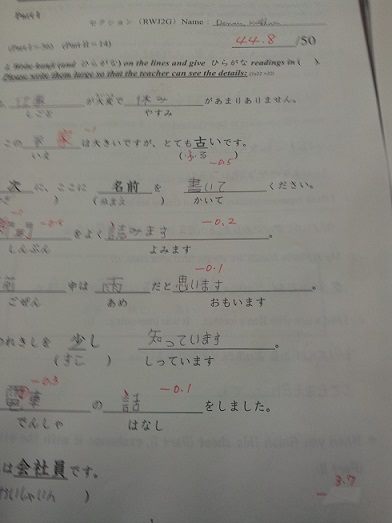 Part I
セクション (RWJ2G) Name :
(Part I = 36) (Part II = 14) 44.8 /50
ひらがな) on the lines and give ひらがな readings in ( )
Please write them large so that the teacher can see the details:
が大変で 休み があまりありません。
しごと やすみ
この 家 は大きいですが、とても古いです。
いえ -0.5
次 に、ここに 名前 を 書いて ください。
) (なまえ ) かいて
をよく 読みます -0.2 。
しんぶん よみます
-0.1
前 中は 雨 だと 思います 。
ごぜん あめ おもいます
れきしを 少し 知っています 。
(すこ ) しっています
-0.3 -0.1
電車 の 話 をしました。
でんしゃ はなし
は会社員です。
いしゃいん ) - 3.7